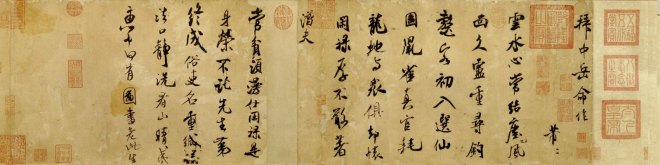 拜中岳命作
芾
雲水心常結塵風
面久盧重尋釣
鰲客初入選仙
圖鼠雀真官耗
龍蛇與衆俱却懷
閑祿厚不敢著
潛夫
常貧須漫仕閑祿是
身榮不託先生第
終成俗吏名重緘議
法口靜洗看山晴夷
惠中何有圖書老此生